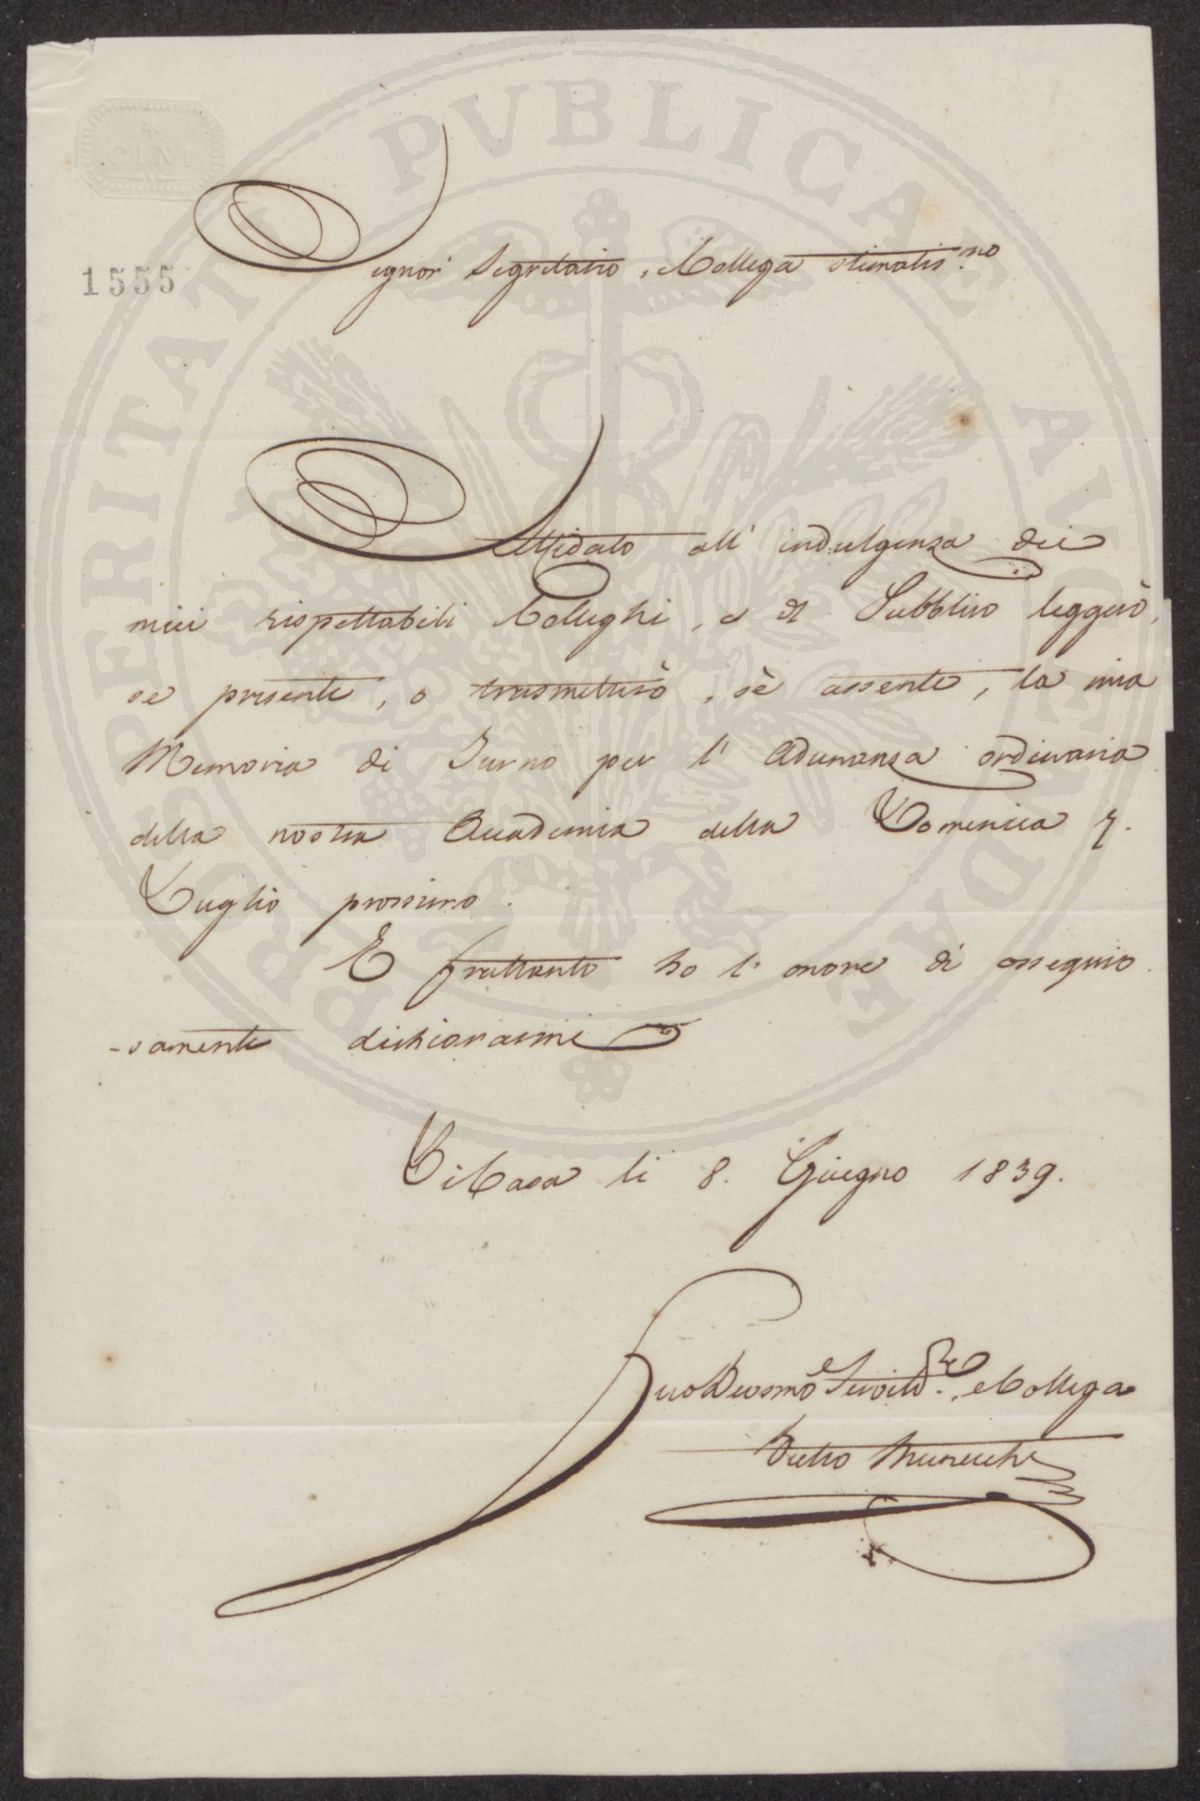 PROSPERITATI PVBLICAE AVGENDAE
CINI
1555
Signor Segretario, e Collega stimatis.mo
Affidato all' indulgenza dei
miei rispettabili Colleghi, e di Pubblico leggerò,
se presente, o trasmetterò, sè assente, la mia
Memoria di Turno per l' Adunanza ordinaria
della nostra Accademia della Domenica 7.
Luglio prossimo.
E frattanto ho l' onore di ossequio
-samente dichiararmi
Di Casa li 8. Giugno 1839.
Suo Devosmo e Servit.re, e Collega
Pietro